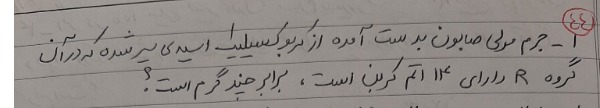 ۴۴
۱- جرم مولی صابون بدست آمده از کربوکسیلیک اسیدی سیر شده که درآن
گروه R دارای ۱۴ اتم کربن است، برابر چند گرم است؟